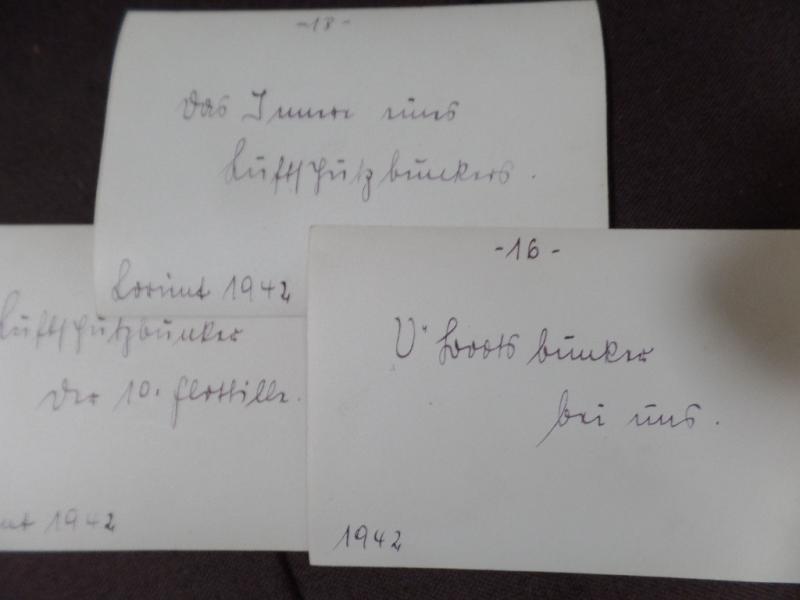 -18-
Das Innere eines
Luftschutzbunkers.
Lorient 1942
Luftschutzbunker
der 10. Flottille.
nt 1942
-16-
U-Bootsbunker
bei uns.
1942